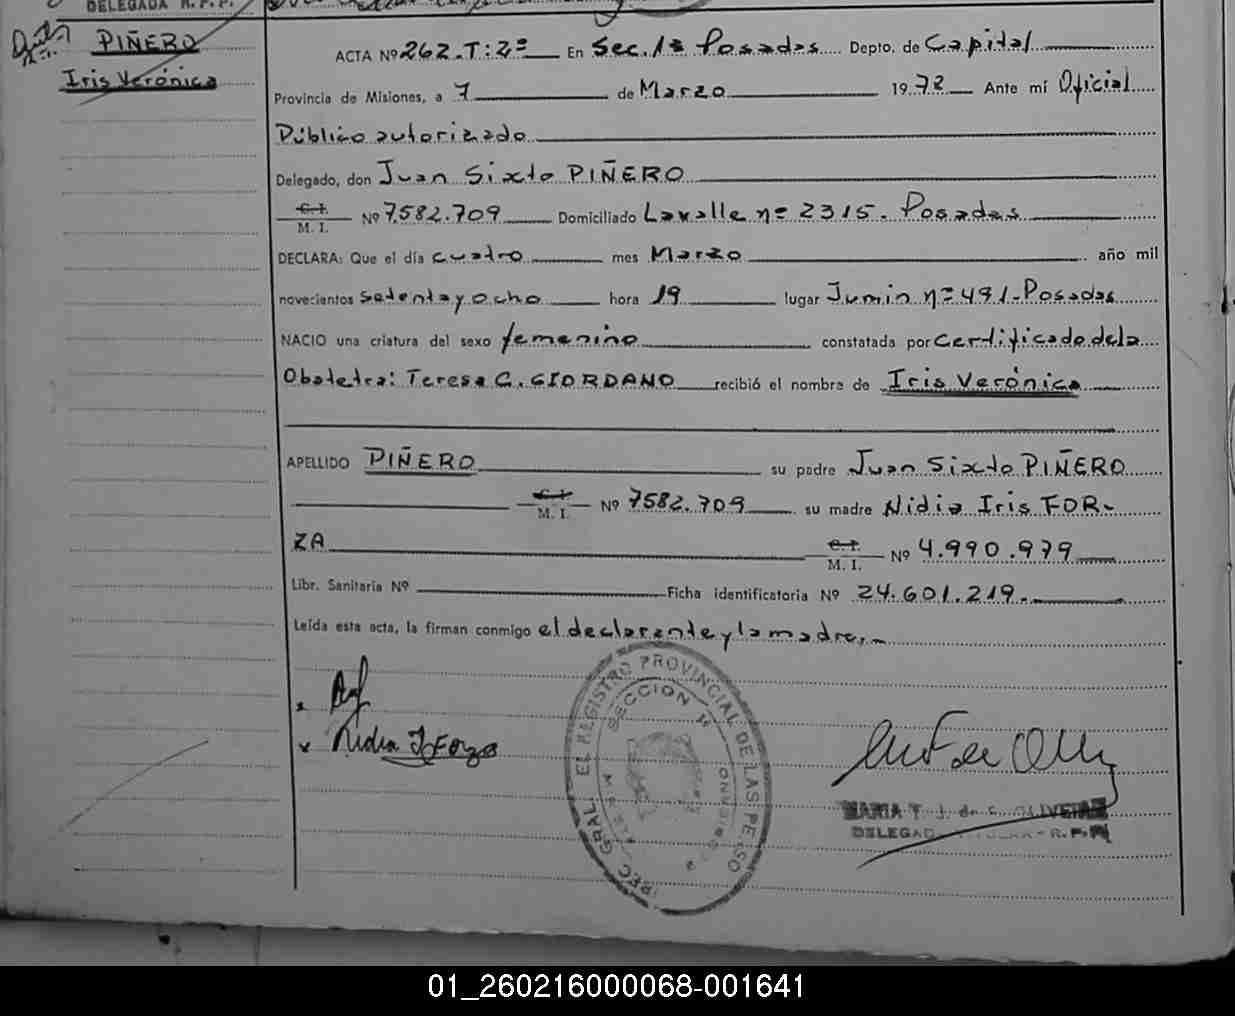 DELEGADA R.P.P.
PIÑERO
Iris Verónica
ACTA Nº 262.T:2º En Sec. 1ª Posadas Depto. de Capital
Provincia de Misiones, a 7 de Marzo 1978 Ante mí Oficial
Público autorizado
Delegado, don Juan Sixto PIÑERO
C.I.
M. I. Nº 7.582.709 Domiciliado Lavalle nº 2315. Posadas
DECLARA: Que el día cuatro mes Marzo año mil
novecientos setenta y ocho hora 19 lugar Junin nº 491-Posadas
NACIO una criatura del sexo femenino constatada por Certificado de la
Obstetra: Teresa C. GIORDANO recibió el nombre de Iris Verónica
APELLIDO PIÑERO su padre Juan Sixto PIÑERO
C.I.
M. I. Nº 7582.709 su madre Nidia Iris FOR-
ZA C.I.
M. I. Nº 4.990.979
Libr. Sanitaria Nº Ficha identificatoria Nº 24.601.219.
Leída esta acta, la firman conmigo el declarante y la madre.
Nidia I Forza
GRAL. EL REGISTRO PROVINCIAL DE LAS PERSO
SECCION
MARIA T. J. de
DELEGADA TITULAR - R. P. P.
01_260216000068-001641